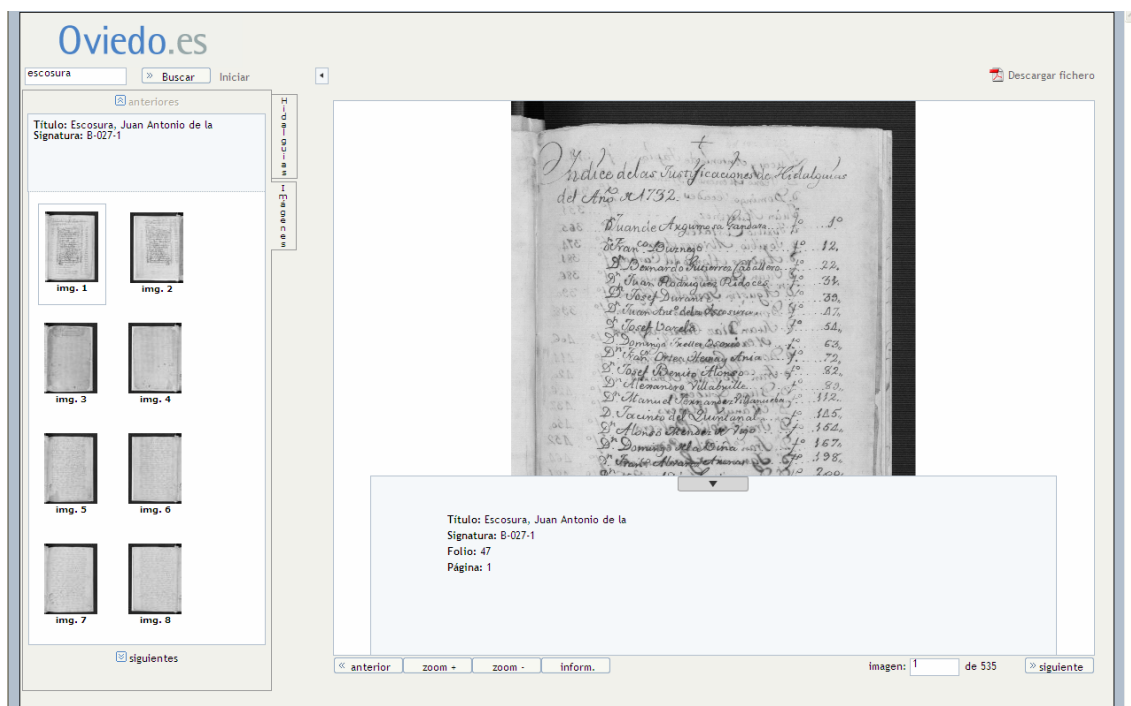 Oviedo.es
escosura
» Buscar
Iniciar
Descargar fichero
anteriores
Hidalguías
Imágenes
Título: Escosura, Juan Antonio de la
Signatura: B-027-1
img. 1
img. 2
img. 3
img. 4
img. 5
img. 6
img. 7
img. 8
siguientes
Indice de las Justificaciones de Hidalguias
del Año de 1732.
Dn Juan de Argumosa Gandara fo 1o
Dn Franco Busnego fo 12,
Dn Bernardo Gutierrez Caballero fo 22,
Dn Juan Rodriguez Ridoces fo 31,
Dn Josef Durante 39,
Dn Juan Anto de la Escosura fo 47,
Dn Josef Varela fo 54,
Dn Domingo fo 63,
Dn Franco fo 72,
Dn Josef Benito Alonso fo 82,
Dn Villabrille fo
Dn Manuel Fernandez Villanueba 112,
Dn Jacinto del Quintanal fo 145,
Dn Alonso Mendez de Vigo fo 154,
Dn Domingo de la Viña fo 167,
Dn fo 198,
Título: Escosura, Juan Antonio de la
Signatura: B-027-1
Folio: 47
Página: 1
« anterior
zoom +
zoom -
inform.
imagen: 1 de 535
» siguiente